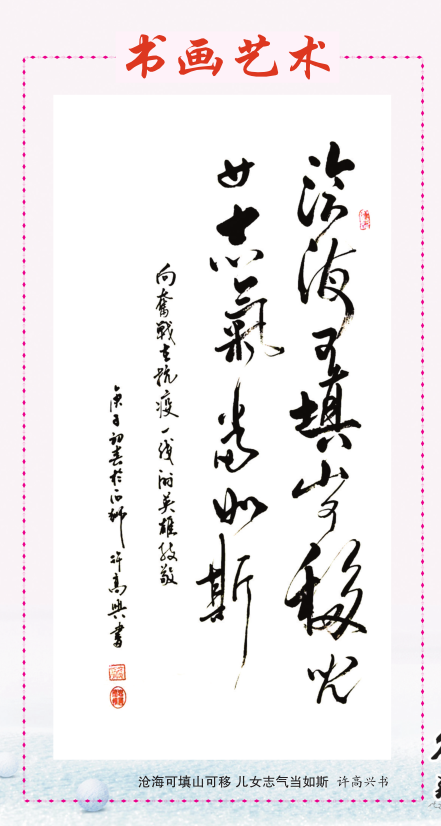 书画艺术
滄海可填山可移兒
女志氣當如斯
向奮戰在抗疫一线的英雄致敬
庚子初春於石狮 许高興書
沧海可填山可移 儿女志气当如斯 许高兴书